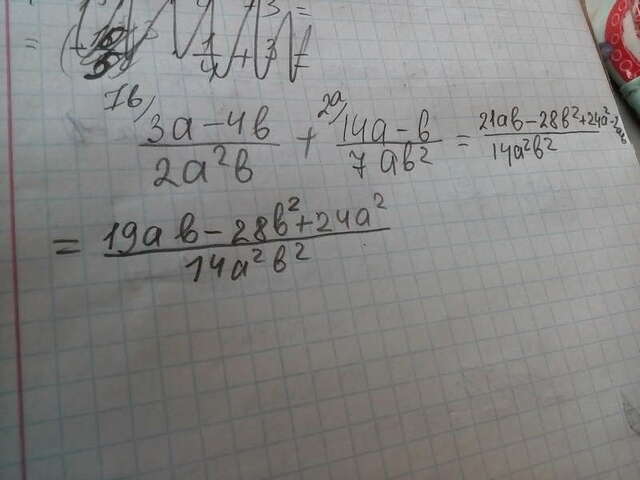 7b) 2a)
(3a-4b)/(2a²b) + (14a-b)/(7ab²) = (21ab-28b²+24a²-2ab)/(14a²b²)
= (19ab-28b²+24a²)/(14a²b²)